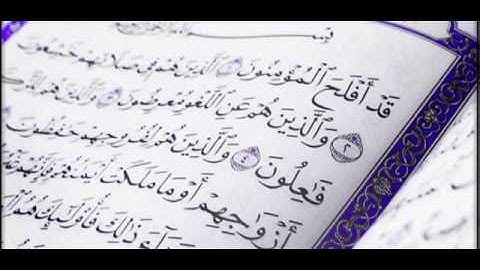 بِسْمِ
قَدْ أَفْلَحَ ٱلْمُؤْمِنُونَ ١ ٱلَّذِينَ هُمْ فِى صَلَاتِهِمْ خَٰشِعُونَ
٢ وَٱلَّذِينَ هُمْ عَنِ ٱللَّغْوِ مُعْرِضُونَ ٣ وَٱلَّذِينَ هُمْ
فَٰعِلُونَ ٤ وَٱلَّذِينَ هُمْ لِفُرُوجِهِمْ حَٰفِظُونَ
أَزْوَٰجِهِمْ أَوْ مَا مَلَكَتْ أَيْمَٰنُهُمْ فَإِنَّهُمْ
ذَٰلِكَ فَأُو۟لَٰٓئِكَ هُمُ